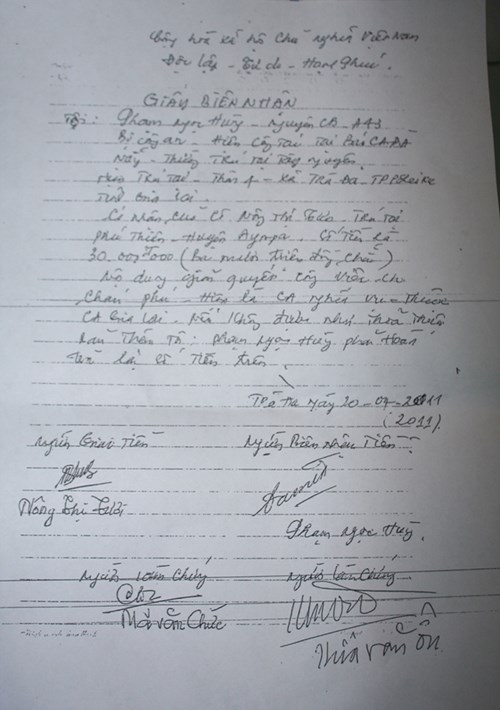 Cộng hoà xã hội chủ nghĩa Việt Nam
Độc lập - Tự do - Hạnh Phúc.
GIẤY BIÊN NHẬN
Tôi: Phạm Ngọc Huy - Nguyên CA - A43
Bộ công an - Hiện công tác tại
Nẵng - Thường Trú tại Tây Nguyên
Hiện Trú tại - Thôn 4 - xã Trà Đa - TP Pleiku
Tỉnh Gia Lai.
Có nhận của Cô Nông Thị Tươi - Trú tại
Phú Thiện - Huyện Ayunpa - Số tiền là
30.000.000 (Ba mươi triệu đồng chẵn)
giải quyết công việc
là CA nghĩa vụ - thuộc
CA Gia Lai - Nếu không được như thoả thuận
Phạm Ngọc Huy phải hoàn
trả lại số tiền trên.
Trà Đa ngày 20-07-2011
(2011)
Người Giao Tiền Người Nhận Tiền
Nông Thị Tươi
Phạm Ngọc Huy.
Người làm chứng Người làm chứng
văn Chức
Hứa văn Ôn